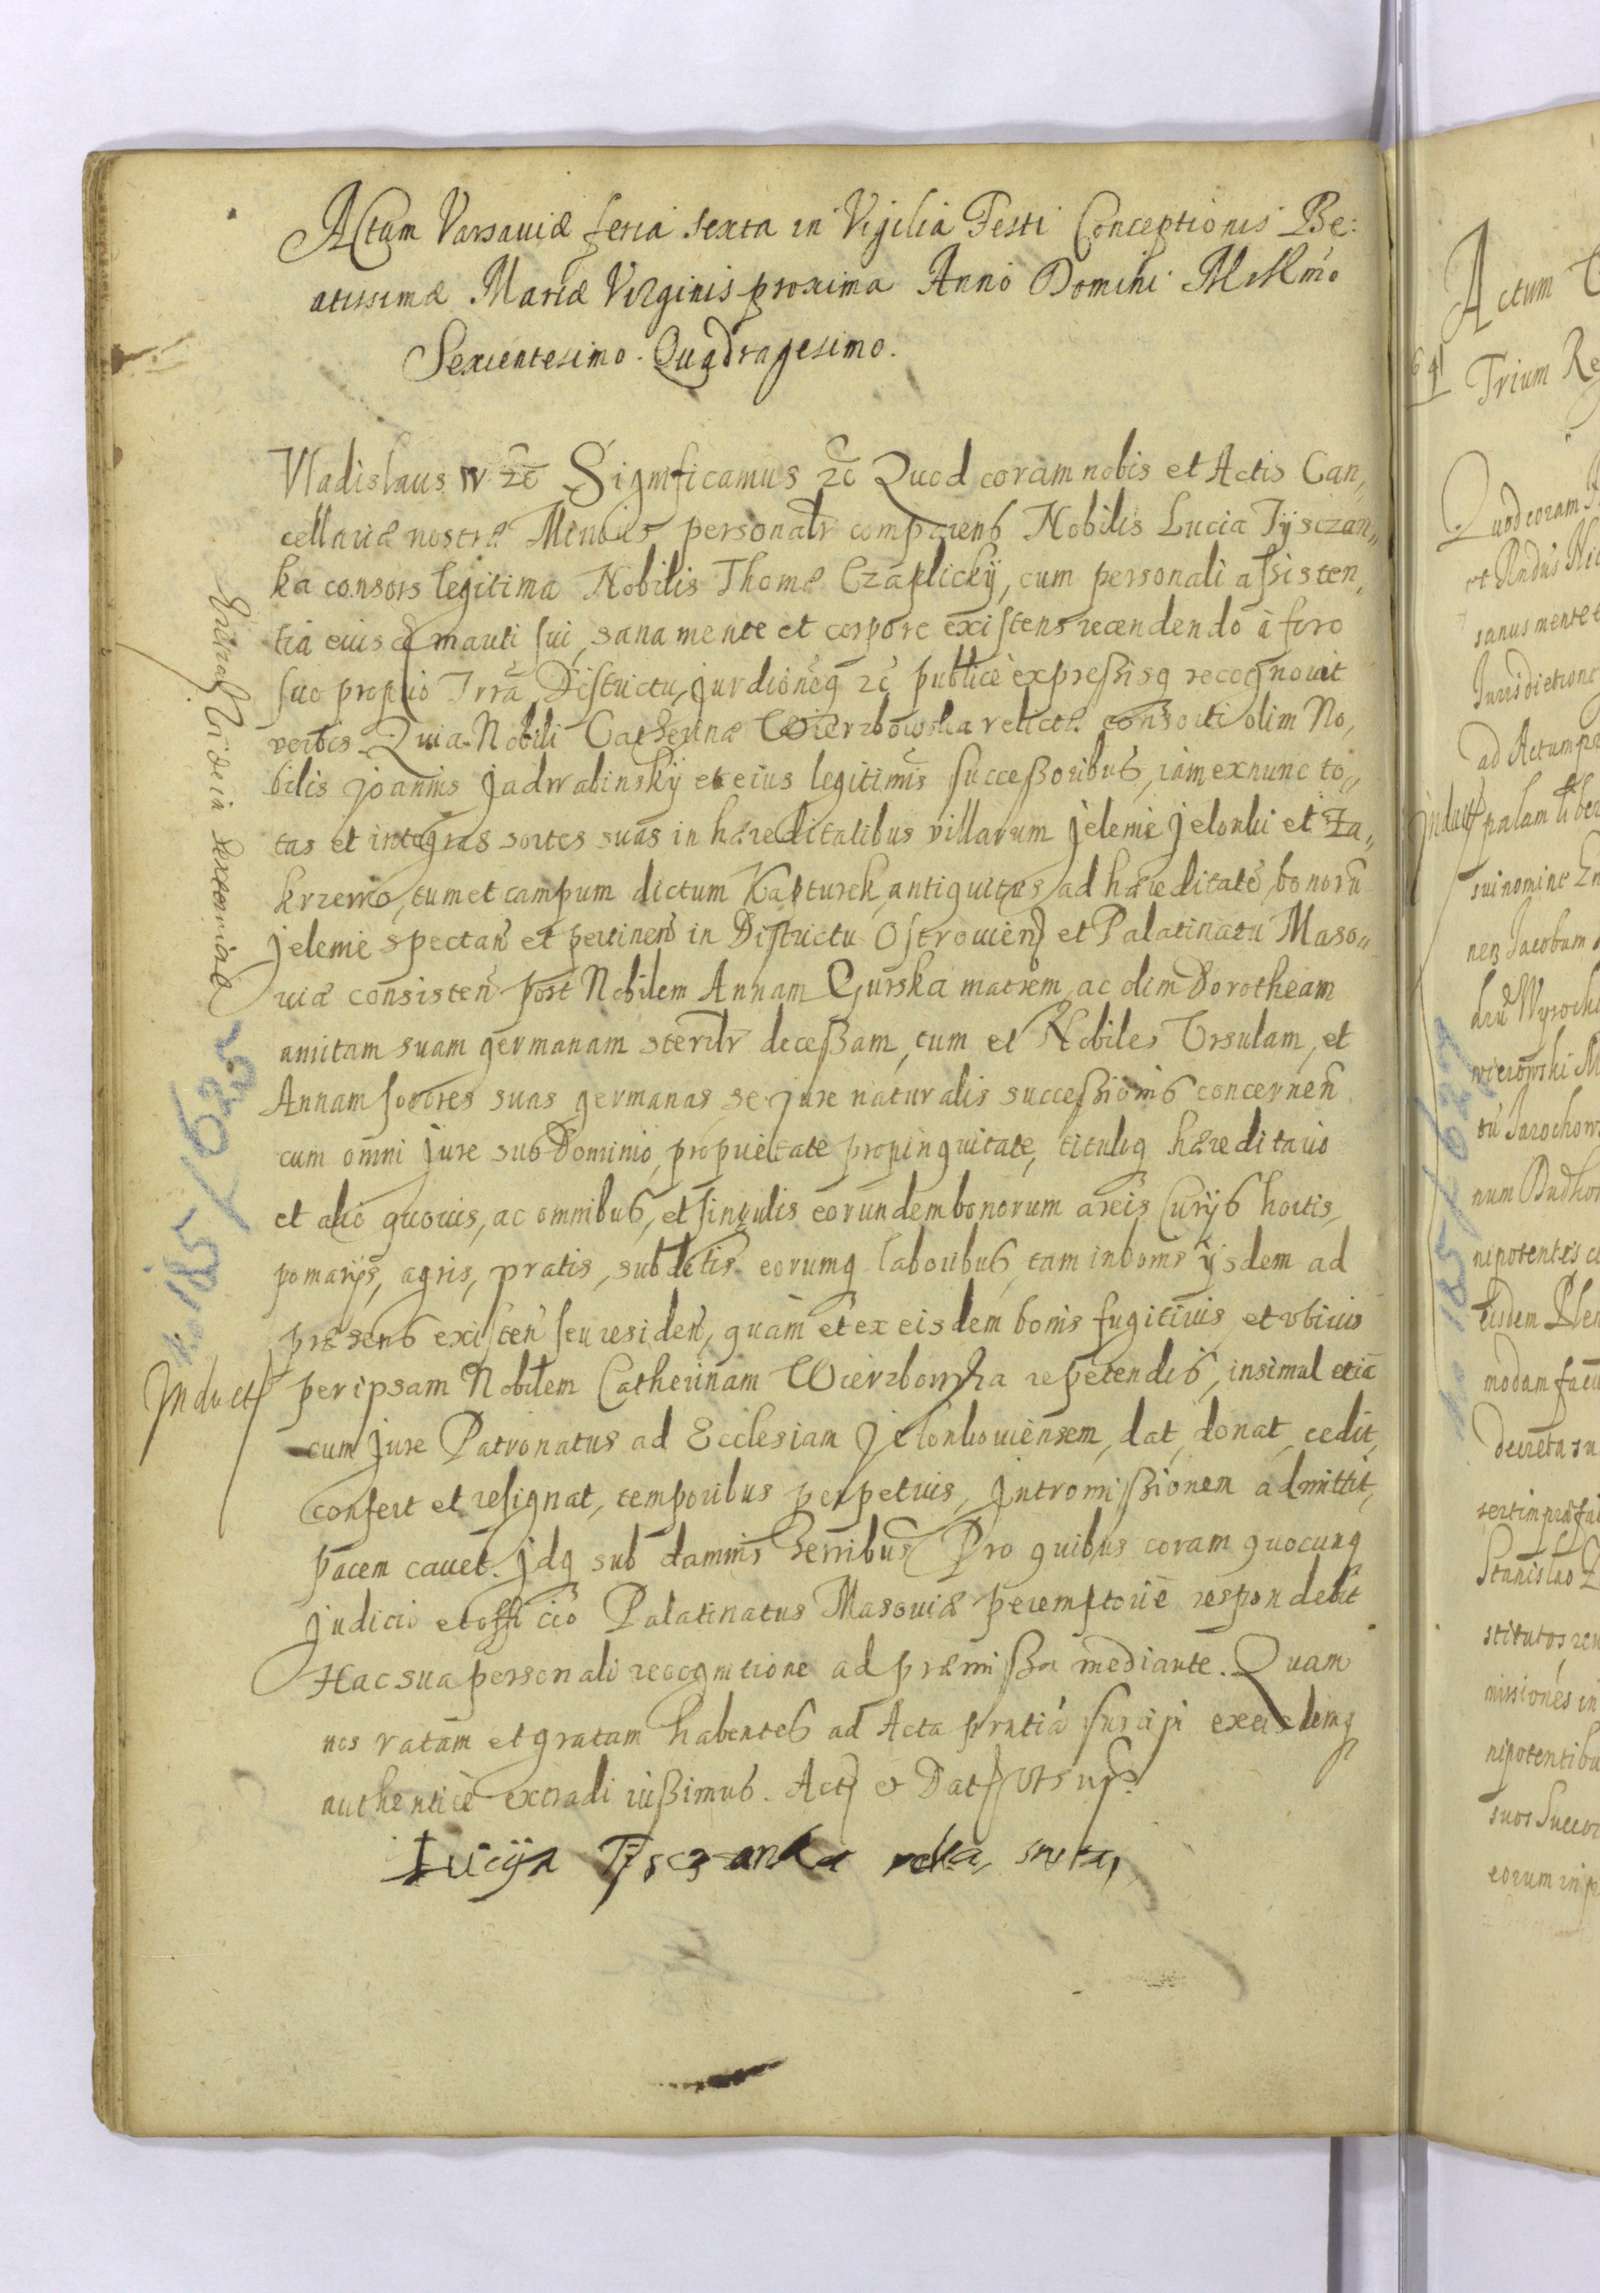 Actum Varsaviæ feria sexta in Vigilia Festi Conceptionis Be:
atissimæ Mariæ Virginis proxima Anno Domini Millmo
Sexcentesimo Quadragesimo.
Vladislaus IV etc Significamus etc Quod coram nobis et Actis Can„
cellariæ nostræ Minoris personalr comparens Nobilis Lucia Tysczan„
ka consors legitima Nobilis Thomæ Czaplickij, cum personali assisten„
tia eiusd mariti sui, sana mente et corpore existens recendendo à foro
suo proprio Trra, Districtu, jurdioneq etc publicè expressisq recognovit
verbis Quia Nobili Catherinæ Wierzbowska relictæ consorti olim No„
bilis joannis jadwabinskij et eius legitimis successoribus, iam ex nunc to„
tas et integras sortes suas in hæreditatibus villarum jelenie jelonki et Za„
krzewo, tum et campum dictum Kapturek, antiquitus ad hæreditatē bonorū
jelenie spectan et pertinen in Districtu Ostrovien et Palatinatu Maso„
viæ consisten post Nobilem Annam Gurska matrem, ac olim Dorotheam
amitam suam germanam sterilr decessam, tum et Nobiles Ursulam, et
Annam sorores suas germanas, se jure naturalis successionis concernen
cum omni jure sub Dominio, proprietate propinquitate, tituloq hæreditario
et alio quovis, ac omnibus, et singulis eorundem bonorum areis Curijs hortis,
pomarijs, agris, pratis, subditis eorumq laboribus, tam in bonis ijsdem ad
præsens existen seu residen, quàm et ex eisdem bonis fugitivis, et ubivis
per ipsam Nobilem Catherinam Wierzbowska repetendis, insimul etiā
cum jure Patronatus ad Ecclesiam jelonkoviensem, dat, donat, cedit,
confert et resignat, temporibus perpetuis, jntromissionem admittit,
pacem cavet. jdq sub damnis terribus Pro quibus coram quocunq
judicio et officio Palatinatus Masoviæ peremptoriè respondebit
Hac sua personali recognitione ad præmissa mediante. Quam
nos ratam et gratam habentes ad Acta prntia suscipi ex eisdemq
authenticè extradi iussimus. Act et Dat Ut sup.
Lucija Tysczanka ręką swą
Jnduct
no 185/635
641
Actum
Trium Re
Quod coram
sanus mente
Jurisdictione
ad Actum pa
jnduct
palam liber
sui nomine
nen Jacobum
num Budko
nipotentes
eisdem Plen
modam facu
decreta su
Stanislao
missiones in
nipotentibu
suos Succe
eorum in